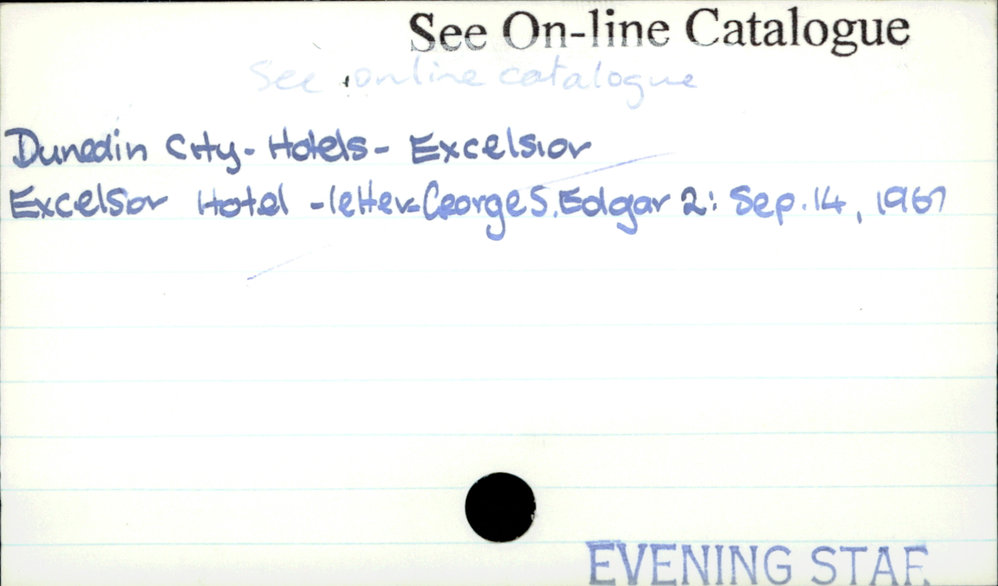 See On-line Catalogue
See online catalogue
Dunedin City - Hotels - Excelsior
Excelsor Hotel - letter - George S. Edgar 2: Sep. 14, 1967
EVENING STAR